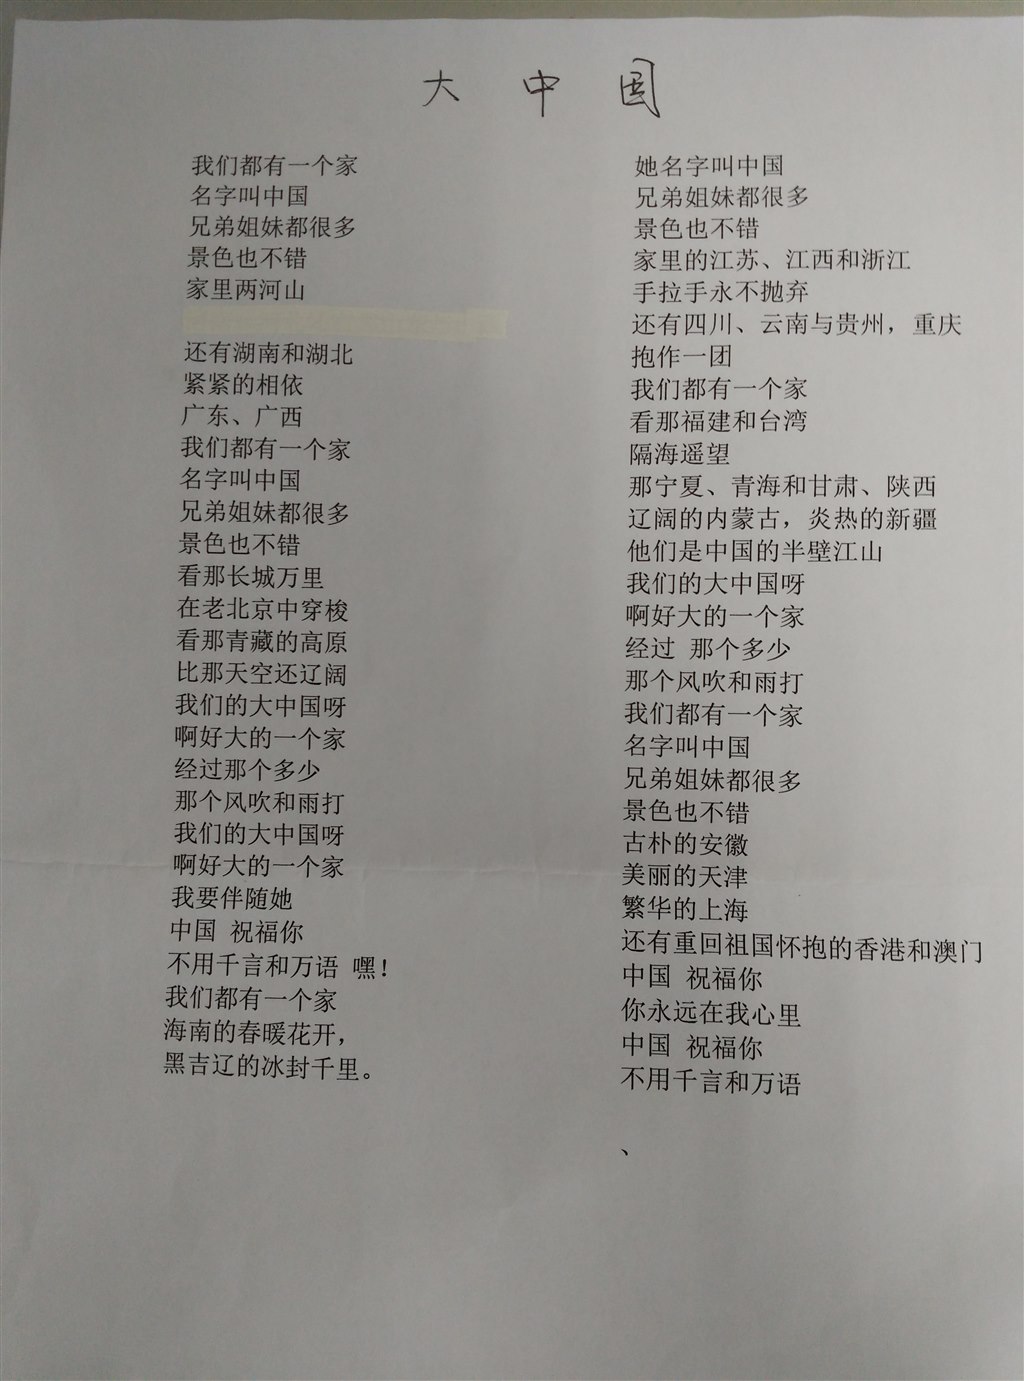 大中国
我们都有一个家
名字叫中国
兄弟姐妹都很多
景色也不错
家里两河山
还有湖南和湖北
紧紧的相依
广东、广西
我们都有一个家
名字叫中国
兄弟姐妹都很多
景色也不错
看那长城万里
在老北京中穿梭
看那青藏的高原
比那天空还辽阔
我们的大中国呀
啊好大的一个家
经过那个多少
那个风吹和雨打
我们的大中国呀
啊好大的一个家
我要伴随她
中国 祝福你
不用千言和万语 嘿！
我们都有一个家
海南的春暖花开，
黑吉辽的冰封千里。
她名字叫中国
兄弟姐妹都很多
景色也不错
家里的江苏、江西和浙江
手拉手永不抛弃
还有四川、云南与贵州，重庆
抱作一团
我们都有一个家
看那福建和台湾
隔海遥望
那宁夏、青海和甘肃、陕西
辽阔的内蒙古，炎热的新疆
他们是中国的半壁江山
我们的大中国呀
啊好大的一个家
经过 那个多少
那个风吹和雨打
我们都有一个家
名字叫中国
兄弟姐妹都很多
景色也不错
古朴的安徽
美丽的天津
繁华的上海
还有重回祖国怀抱的香港和澳门
中国 祝福你
你永远在我心里
中国 祝福你
不用千言和万语
、